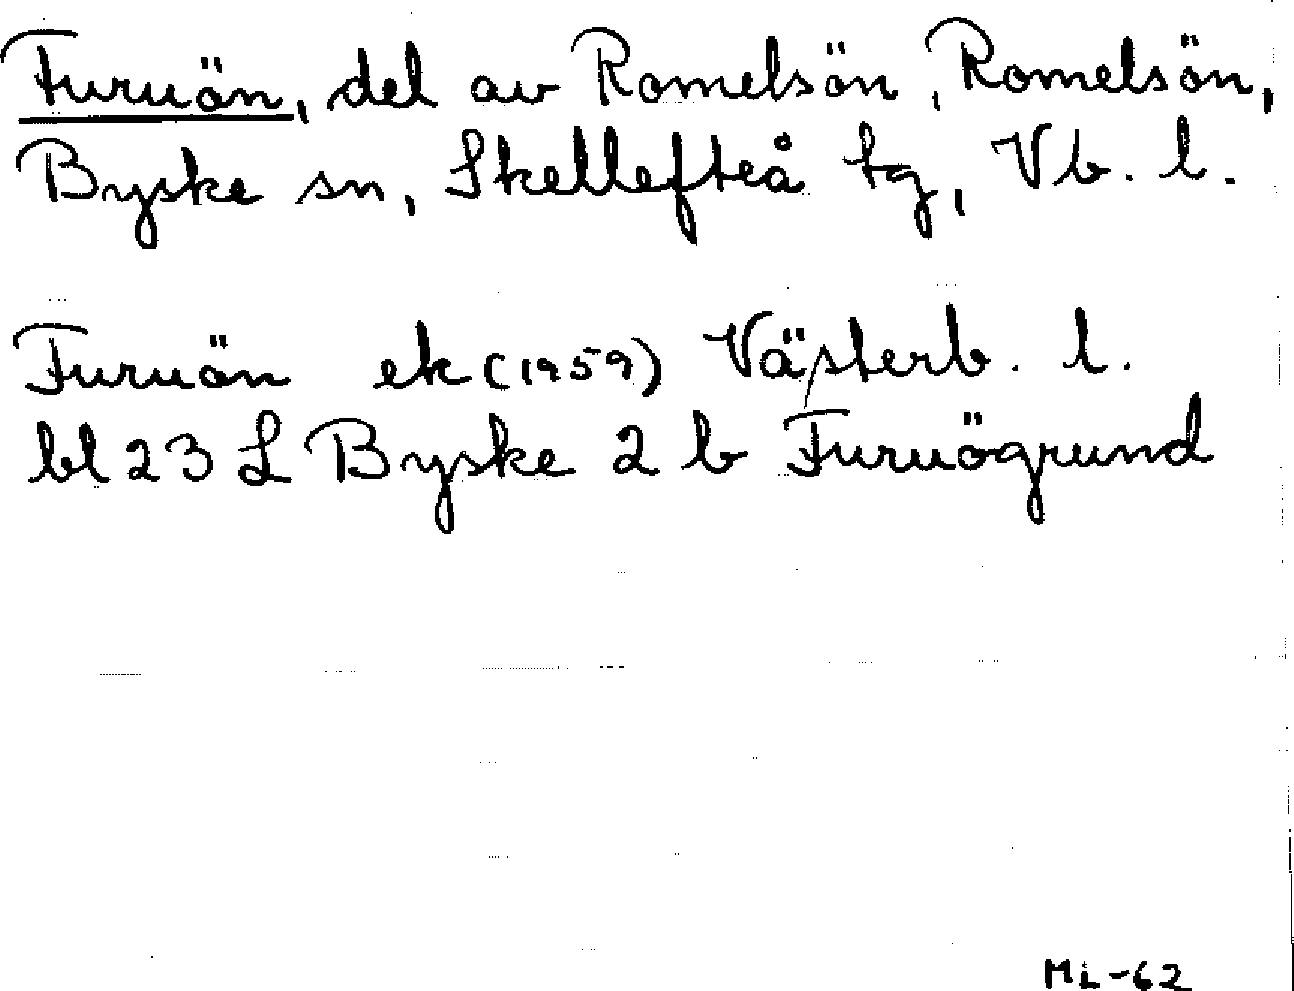 Furuön, del av Romelsön, Romelsön,
Byske sn, Skellefteå tg, Vb. l.
Furuön ek (1959) Västerb. l.
bl 23 L Byske 2 b Furuögrund
ML-62